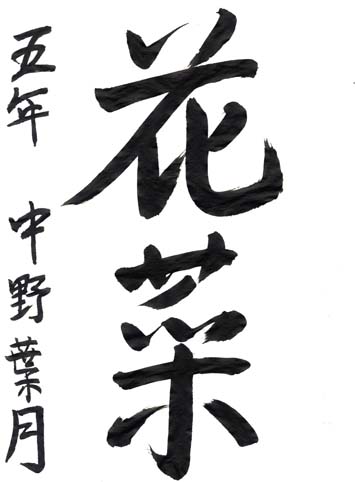 花菜
五年 中野葉月